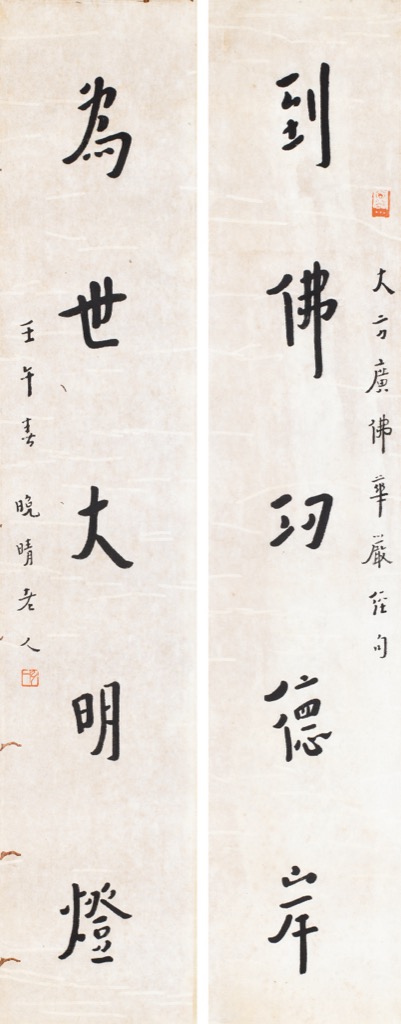 大方廣佛華嚴經句
到佛功德岸
為世大明燈
壬午春 晚晴老人